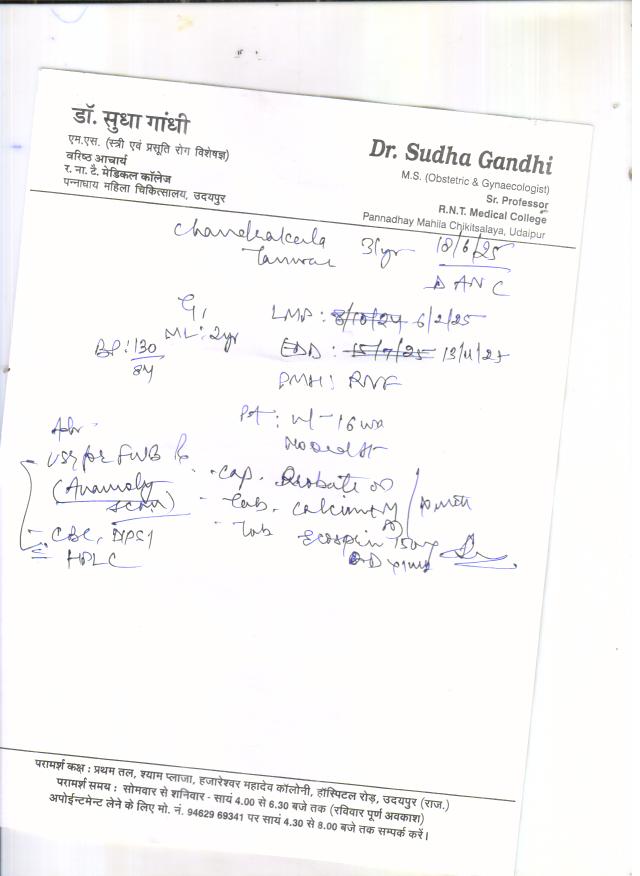 डॉ. सुधा गांधी
एम.एस. (स्त्री एवं प्रसूति रोग विशेषज्ञ)
वरिष्ठ आचार्य
र. ना. टै. मेडिकल कॉलेज
पन्नाधाय महिला चिकित्सालय, उदयपुर
Dr. Sudha Gandhi
M.S. (Obstetric & Gynaecologist)
Sr. Professor
R.N.T. Medical College
Pannadhay Mahila Chikitsalaya, Udaipur
Chandrakala 31yr 18/6/25
Tanwar ANC
G1 LMP : 8/10/24 6/2/25
ML: 2yr
BP: 130/84 EDD : 15/7/25 13/11/25
PMH:
P/A: 16 wk
Adv
USG for FWB
(Anamoly scan)
CBC,
HPLC
Cap.
Tab.
Tab Ecosprin 150mg
परामर्श कक्ष : प्रथम तल, श्याम प्लाजा, हजारेश्वर महादेव कॉलोनी, हॉस्पिटल रोड़, उदयपुर (राज.)
परामर्श समय : सोमवार से शनिवार - सायं 4.00 से 6.30 बजे तक (रविवार पूर्ण अवकाश)
अपोईन्टमेन्ट लेने के लिए मो. नं. 94629 69341 पर सायं 4.30 से 8.00 बजे तक सम्पर्क करें।